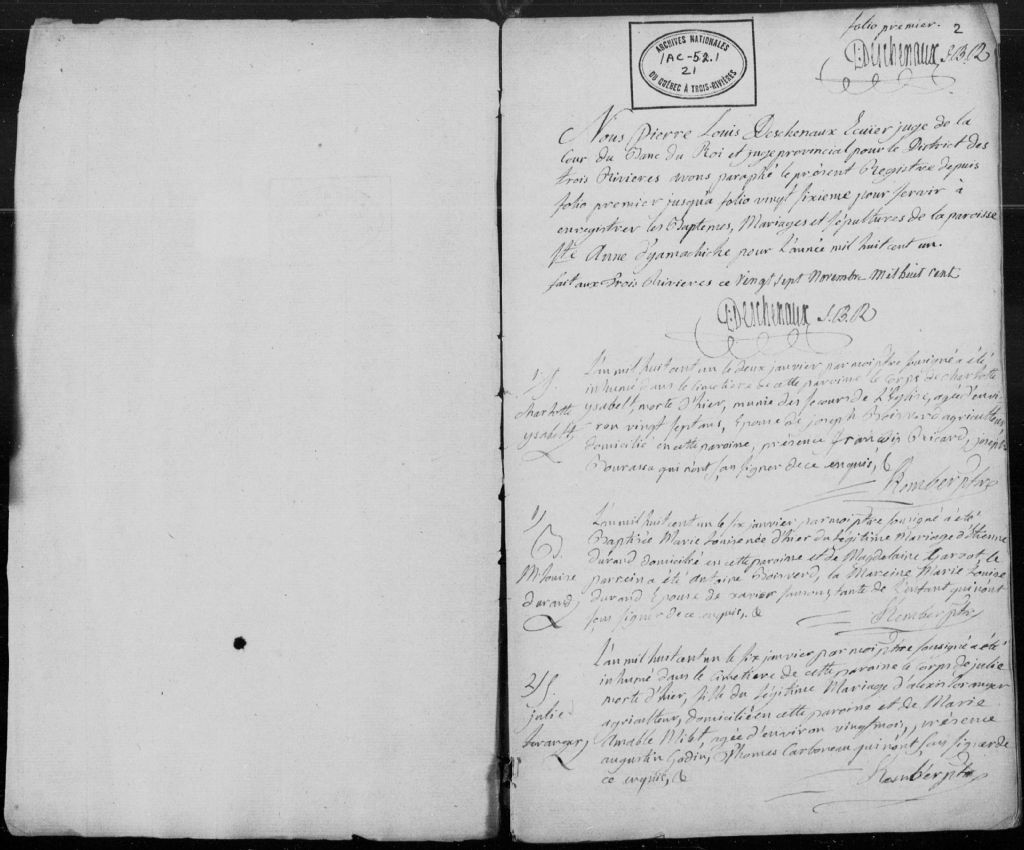 folio premier. 2
P: Deschenaux J.B.R
ARCHIVES NATIONALES
1AC-52.1
21
DU QUÉBEC À TROIS-RIVIÈRES
Nous Pierre Louis Deschenaux Ecuier juge de la
Cour du Banc du Roi et juge provincial pour le District des
trois Rivieres avons paraphé le présent Registre depuis
folio premier jusqu'à folio vingt sixieme pour servir à
enregistrer les Baptemes, Mariages et sépultures de la paroisse
Ste Anne d'yamachiche pour l'année mil huit cent un.
fait aux trois Rivieres ce vingt sept Novembre Mil huit cent
P: Deschenaux J.B.R
1 S.
charlotte
ysabell
L'an mil huit cent un le deux janvier par moi ptre sousigné a été
inhumé dans le cimetiere de cette paroisse le corps de charlotte
ysabell, morte d'hier, munie des secours de l'Eglise, agée d'envi-
ron vingt sept ans, Epouse de joseph Boisverd agriculteur
domicilié en cette paroisse, présence françois Ricard, joseph
Bourassa qui n'ont sçu signer de ce enquis, &
ptre
1
B.
M. louise
durand
L'an mil huit cent un le six janvier par moi ptre sousigné a été
Baptisée Marie louise née d'hier du légitime Mariage d'Etienne
durand domicilié en cette paroisse et de Magdelaine le
parein a été antoine Boisverd, la Mareine Marie louise
durand Epouse de xavier tante de l'enfant qui n'ont
sçu signer de ce enquis, &
ptre
2 S.
julie
L'an mil huit cent un le six janvier par moi ptre sousigné a été
inhumé dans le cimetiere de cette paroisse le corps de julie
morte d'hier, fille du légitime Mariage d'alexis loranger
agriculteur, domicilié en cette paroisse et de Marie
Amable agée d'environ vingt mois, présence
augustin Godin, Thomas Carboneau qui n'ont sçu signer de
ce enquis, &
ptre